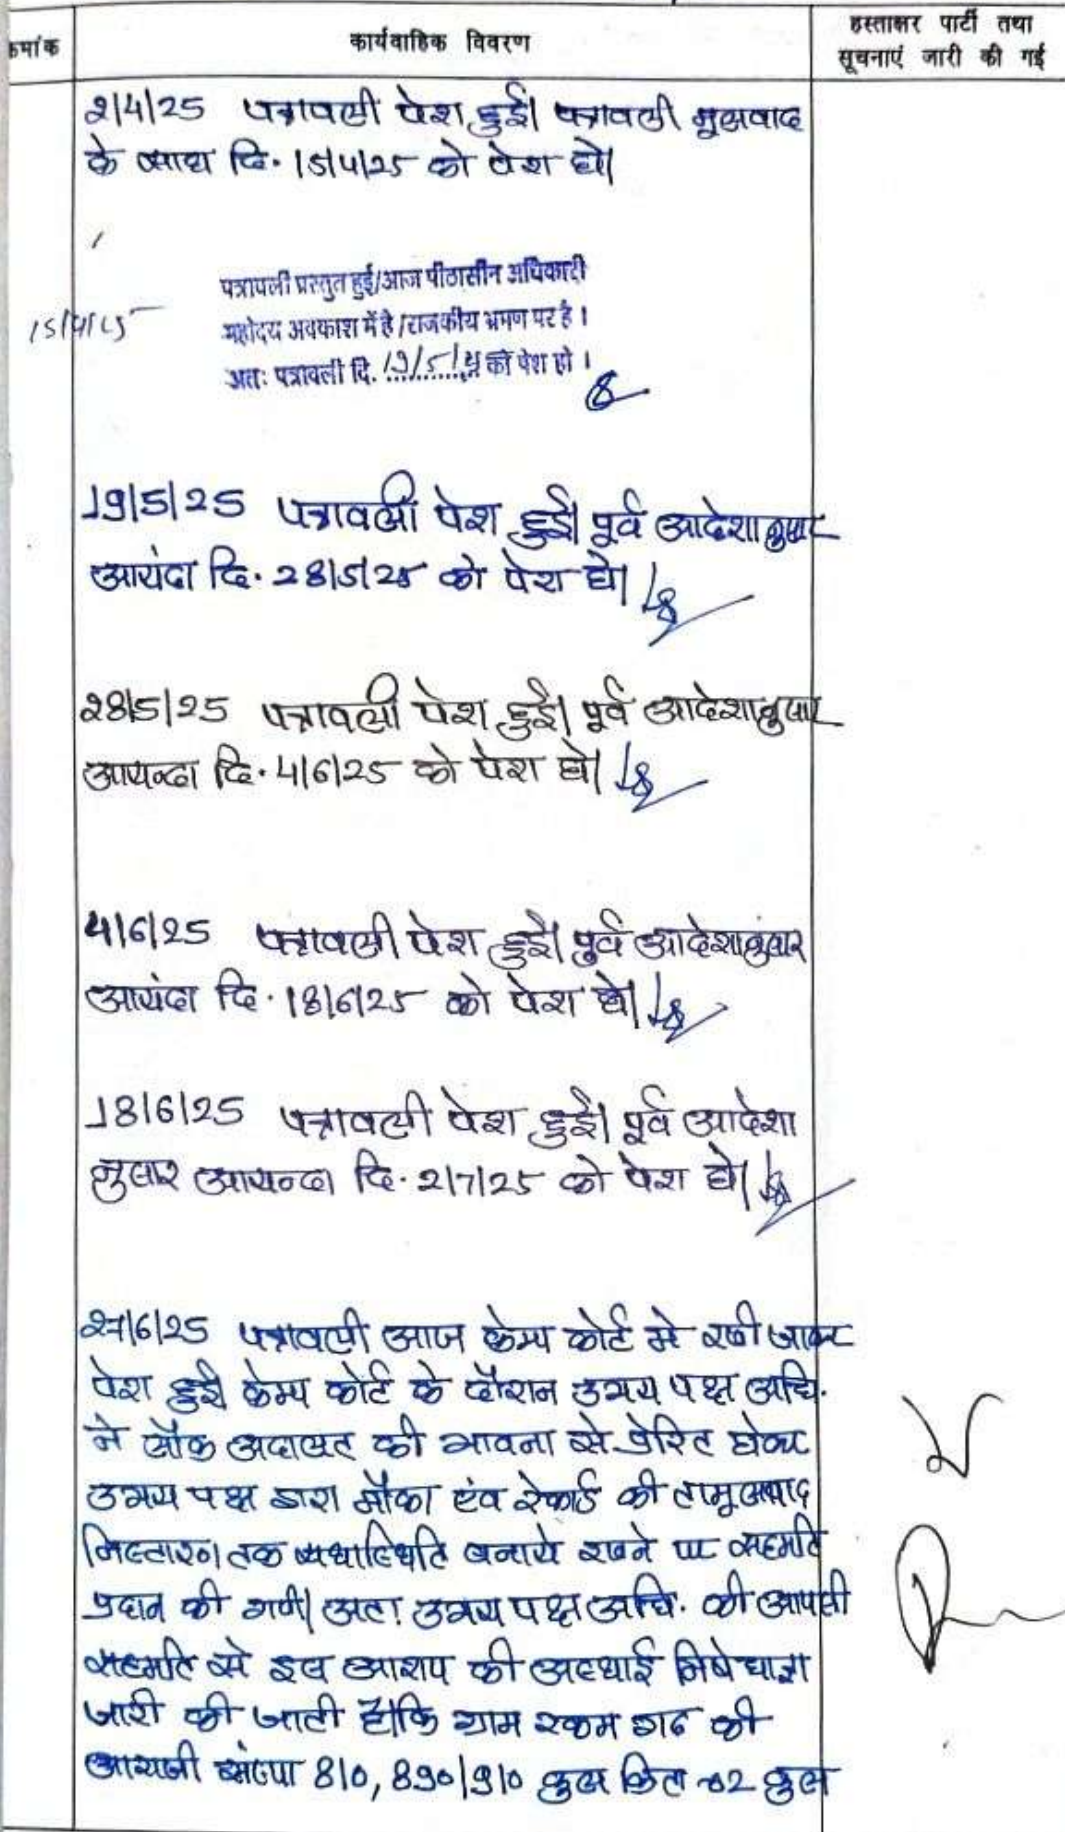 क्रमांक
कार्यवाहिक विवरण
हस्ताक्षर पार्टी तथा
सूचनाएं जारी की गई
2/4/25 पत्रावली पेश हुई। पत्रावली मूलवाद
के साथ दि. 15/4/25 को पेश हो।
15/4/25
पत्रावली प्रस्तुत हुई/आज पीठासीन अधिकारी
महोदय अवकाश में है/राजकीय भ्रमण पर है।
अतः पत्रावली दि. 19/5/25 को पेश हो।
19/5/25 पत्रावली पेश हुई। पूर्व आदेशानुसार
आयंदा दि. 28/5/25 को पेश हो।
28/5/25 पत्रावली पेश हुई। पूर्व आदेशानुसार
आयन्दा दि. 4/6/25 को पेश हो।
4/6/25 पत्रावली पेश हुई। पूर्व आदेशानुसार
आयंदा दि. 18/6/25 को पेश हो।
18/6/25 पत्रावली पेश हुई। पूर्व आदेशा
नुसार आयन्दा दि. 2/7/25 को पेश हो।
27/6/25 पत्रावली आज केम्प कोर्ट मे रखी जाकर
पेश हुई केम्प कोर्ट के दौरान उभय पक्ष अधि.
ने लौक अदालत की भावना से प्रेरित होकर
उभय पक्ष द्वारा मौका एंव रेकार्ड की तामूलवाद
निस्तारण तक यथास्थिति बनाये रखने पर सहमति
प्रदान की गयी। अतः उभय पक्ष अधि. की आपसी
सहमति से इस आशय की अस्थाई निषेधाज्ञा
जारी की जाती है कि ग्राम रकम गढ की
आराजी संख्या 810, 890/910 कुल किता 02 कुल